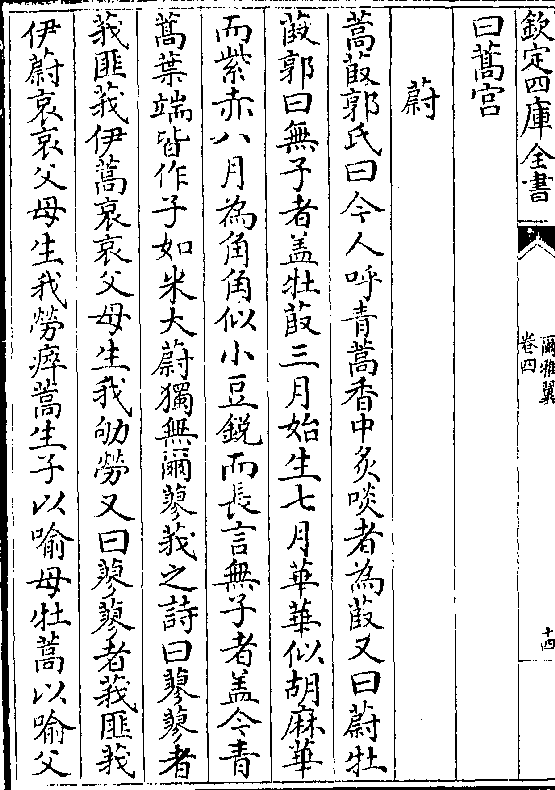 欽定四庫全書
爾雅翼
卷四
十四
曰蒿宫
蔚
蒿菣郭氏曰今人呼青蒿香中炙啖者為菣又曰蔚牡
菣郭曰無子者盖牡菣三月始生七月華華似胡麻華
而紫赤八月為角角似小豆鋭而長言無子者盖今青
蒿葉端皆作子如米大蔚獨無爾蓼莪之詩曰蓼蓼者
莪匪莪伊蒿哀哀父母生我劬勞又曰蓼蓼者莪匪莪
伊蔚哀哀父母生我勞瘁蒿生子以喻母牡蒿以喻父